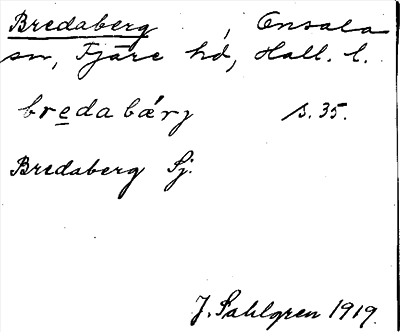 Bredaberg , Onsala
sn, Fjäre hd, Hall. l.
bredabærj s. 35.
Bredaberg Sj.
J. Sahlgren 1919.